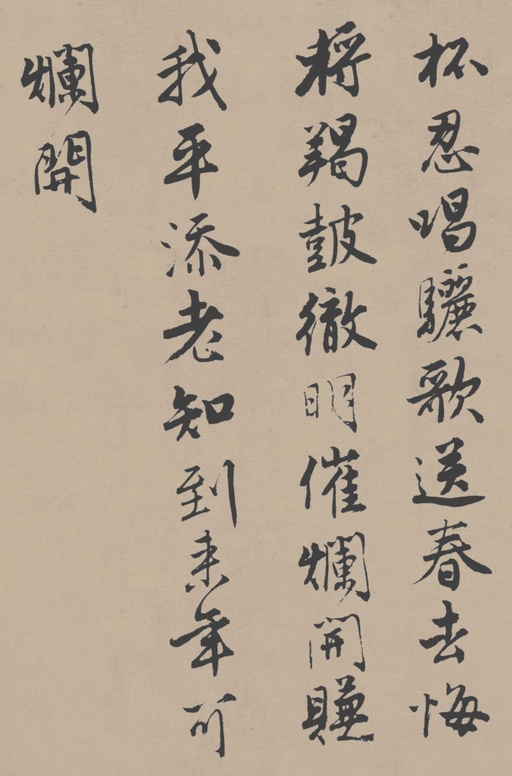 杯忍唱驪歌送春去悔
將羯鼓徹明催爛開賺
我平添老知到来年可
爛開